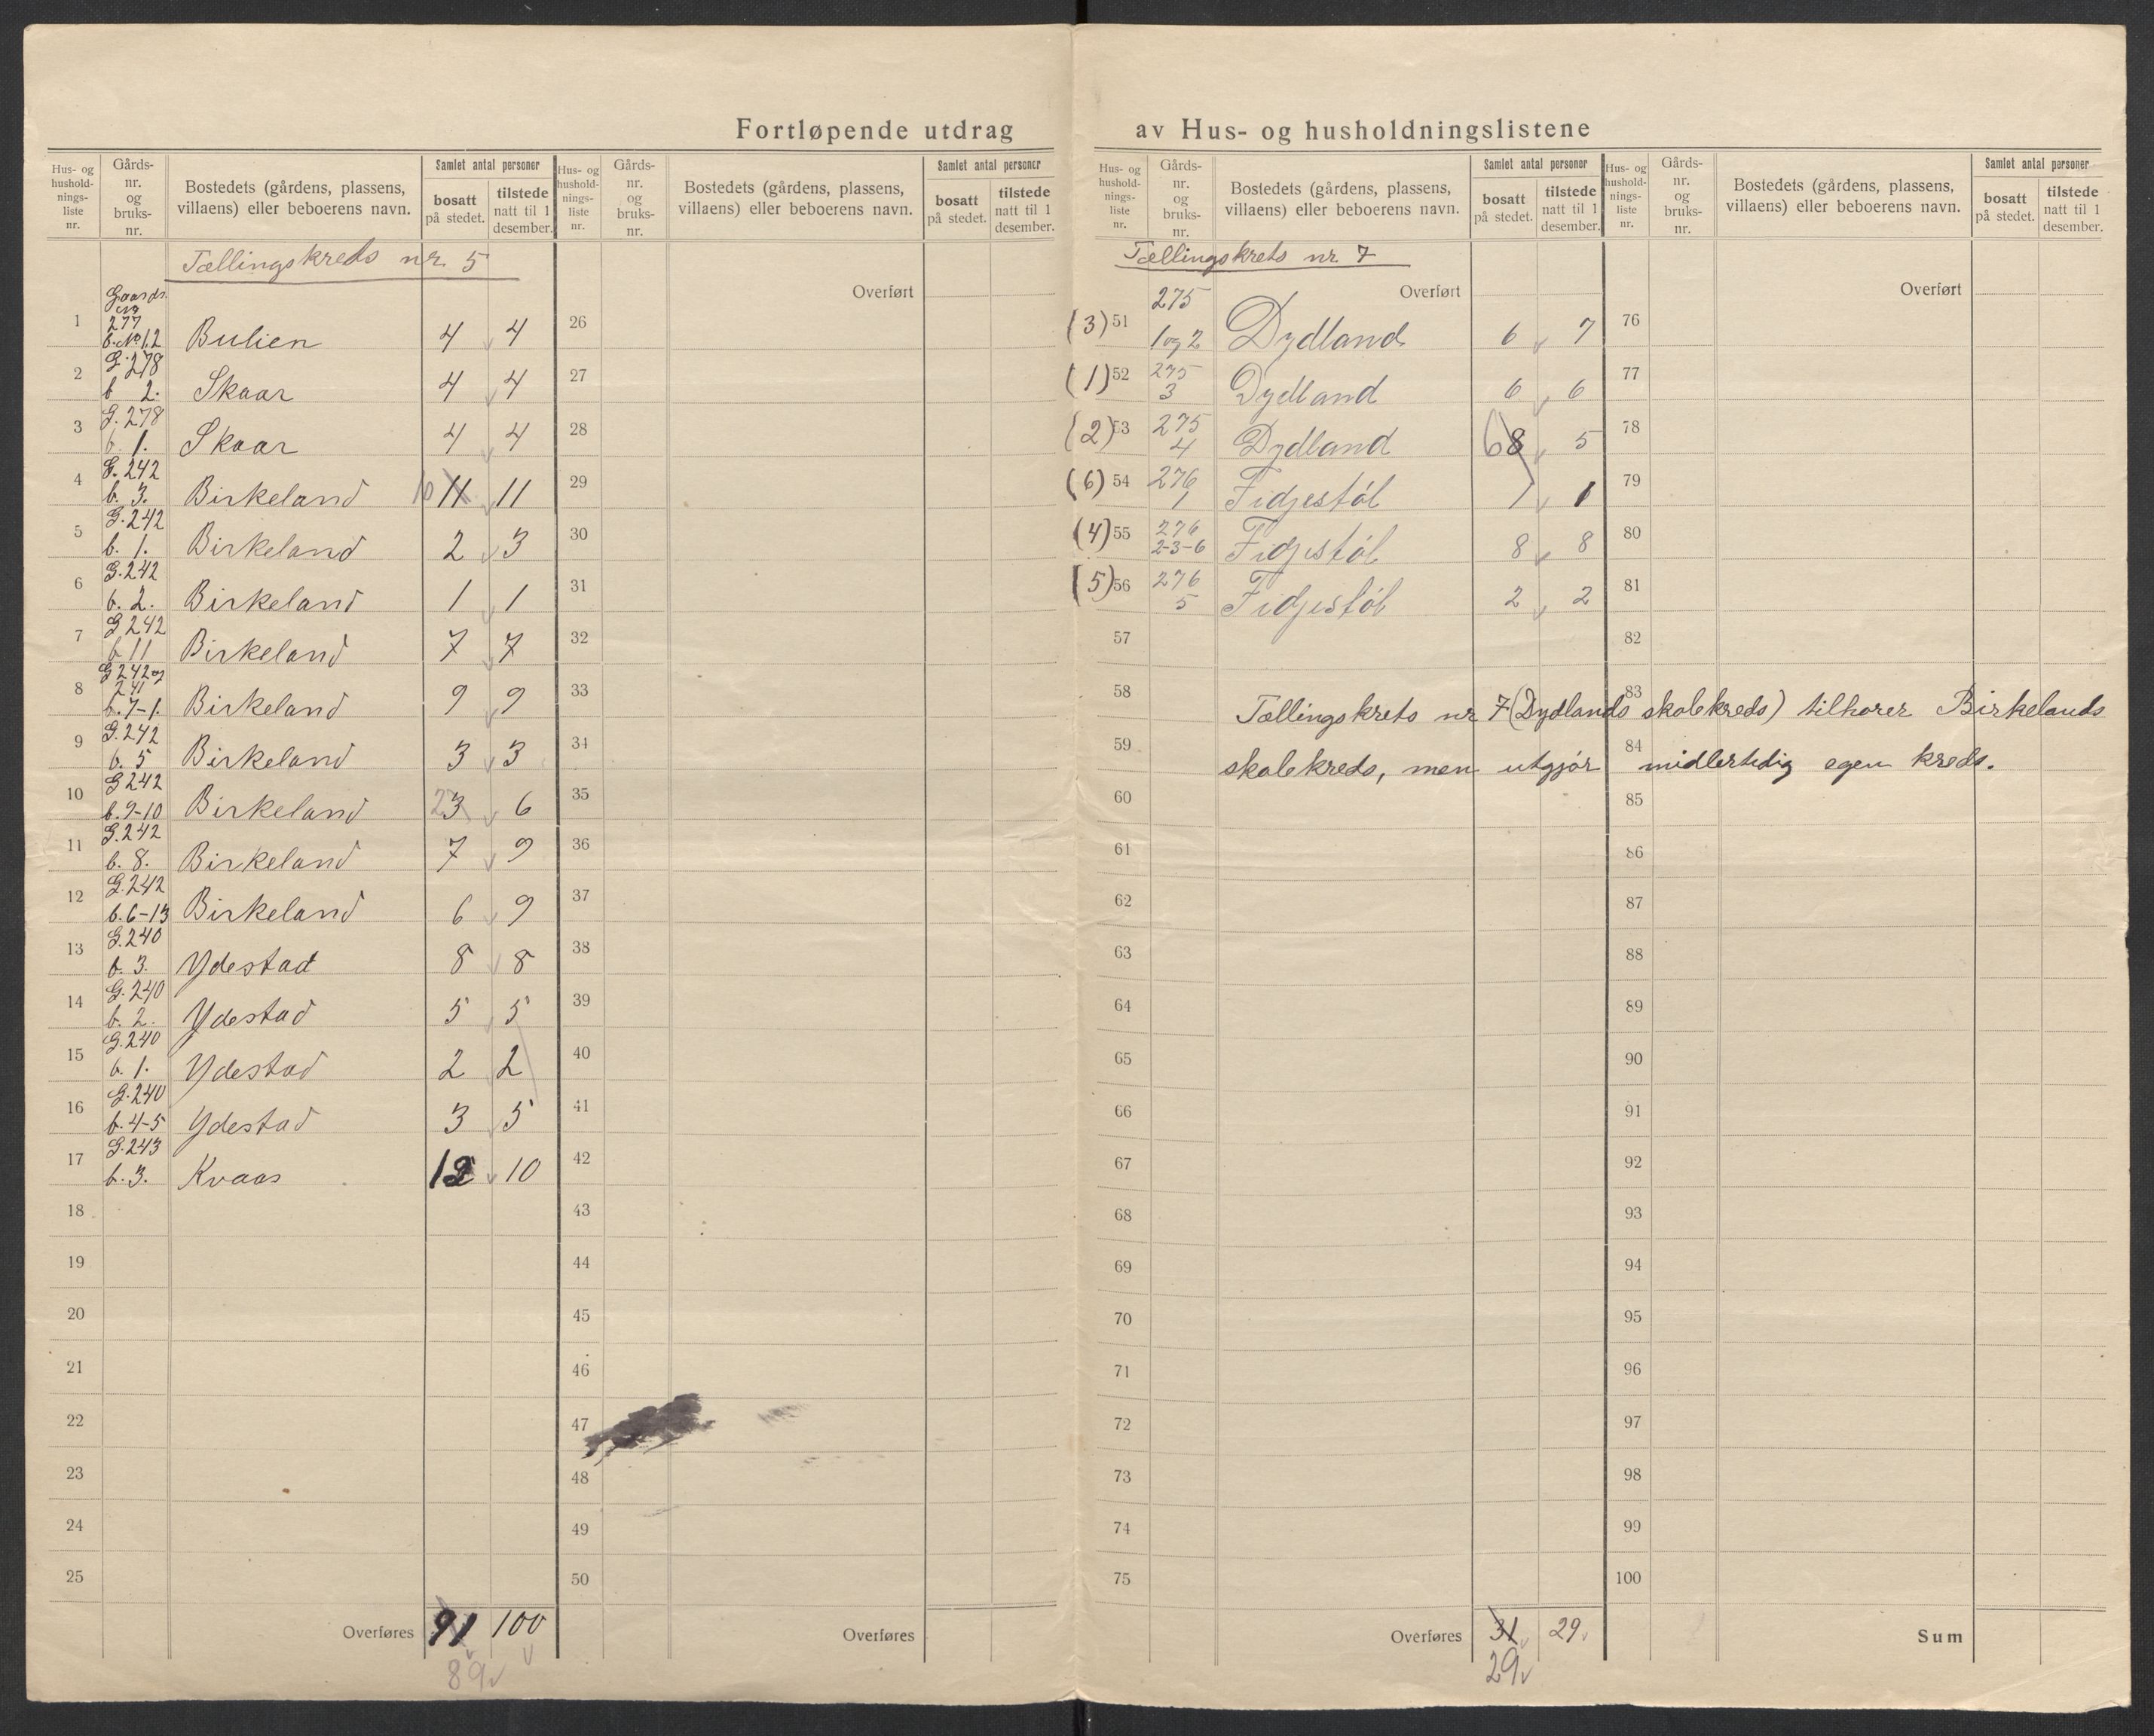 Fortløpende utdrag av Hus- og husholdningslistene
Hus- og hushold-nings-liste nr. Gårds-nr. og bruks-nr. Bostedets (gårdens, plassens, villaens) eller beboerens navn. Samlet antal personer bosatt på stedet. tilstede natt til 1 desember.
Hus- og hushold-nings-liste nr. Gårds-nr. og bruks-nr. Bostedets (gårdens, plassens, villaens) eller beboerens navn. Samlet antal personer bosatt på stedet. tilstede natt til 1 desember.
Tællingskreds nr 5
Overført
1 277 b. No 1.2 Bulien 4 4
2 G. 278 b 2. Skaar 4 4
3 G. 278 b. 1. Skaar 4 4
4 G. 242 b. 3. Birkeland 10 11 11
5 G. 242 b. 1. Birkeland 2 3
6 G. 242 b. 2. Birkeland 1 1
7 G 242 b 11 Birkeland 7 7
8 G 242 og 241 b. 7-1. Birkeland 9 9
9 G. 242 b. 5 Birkeland 3 3
10 G 242 b. 9-10 Birkeland 2 3 6
11 G. 242 b. 8. Birkeland 7 9
12 G. 242 b. 6-13 Birkeland 6 9
13 G. 240 b. 3. Ydestad 8 8
14 G. 240 b. 2. Ydestad 5 5
15 G. 240 b. 1. Ydestad 2 2
16 G. 240 b. 4-5 Ydestad 3 5
17 G. 243 b. 3. Kvaas 12 10
18
19
20
21
22
23
24
25
Overføres 91 100
89
26
27
28
29
30
31
32
33
34
35
36
37
38
39
40
41
42
43
44
45
46
47
48
49
50
Overføres
Hus- og hushold-nings-liste nr. Gårds-nr. og bruks-nr. Bostedets (gårdens, plassens, villaens) eller beboerens navn. Samlet antal personer bosatt på stedet. tilstede natt til 1 desember.
Hus- og hushold-nings-liste nr. Gårds-nr. og bruks-nr. Bostedets (gårdens, plassens, villaens) eller beboerens navn. Samlet antal personer bosatt på stedet. tilstede natt til 1 desember.
Tællingskrets nr 7
Overført
(3) 51 275 1 og 2 Dydland 6 7
(1) 52 275 3 Dydland 6 6
(2) 53 275 4 Dydland 6 8 5
(6) 54 276 1 Fidjestöl 1 1
(4) 55 276 2-3-6 Fidjestöl 8 8
(5) 56 276 5 Fidjestöl 2 2
57
58
Tællingskrets nr 7 (Dydlands skolekreds) tilhører Birkelands
59
skolekreds, men utgjör midlertidig egen kreds.
60
61
62
63
64
65
66
67
68
69
70
71
72
73
74
75
Overføres 31 29
29
Overført
76
77
78
79
80
81
82
83
84
85
86
87
88
89
90
91
92
93
94
95
96
97
98
99
100
Sum